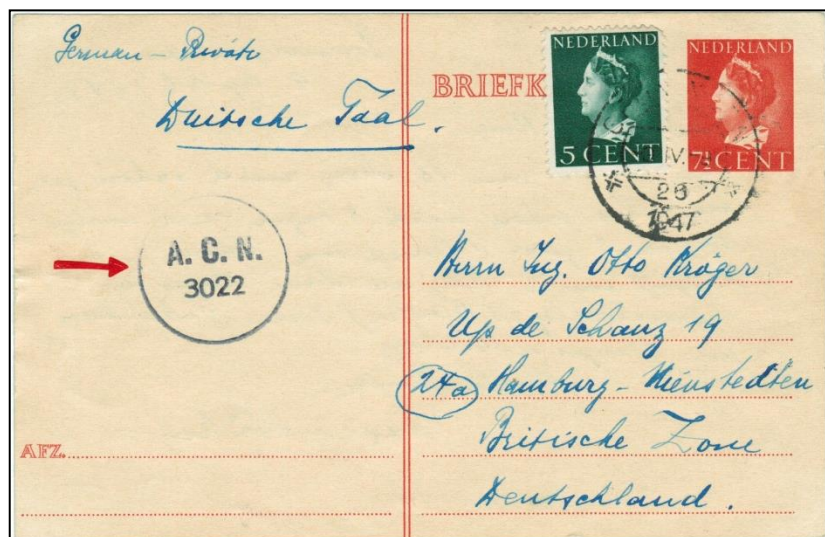 German – Privato
Duitsche Taal.
BRIEFK
NEDERLAND
5 CENT
NEDERLAND
7½ CENT
IV.7
26
1947
A. C. N.
3022
Herrn Ing. Otto Kröger
Up de Schanz 19
24a Hamburg-Nienstedten
Britische Zone
Deutschland.
AFZ.